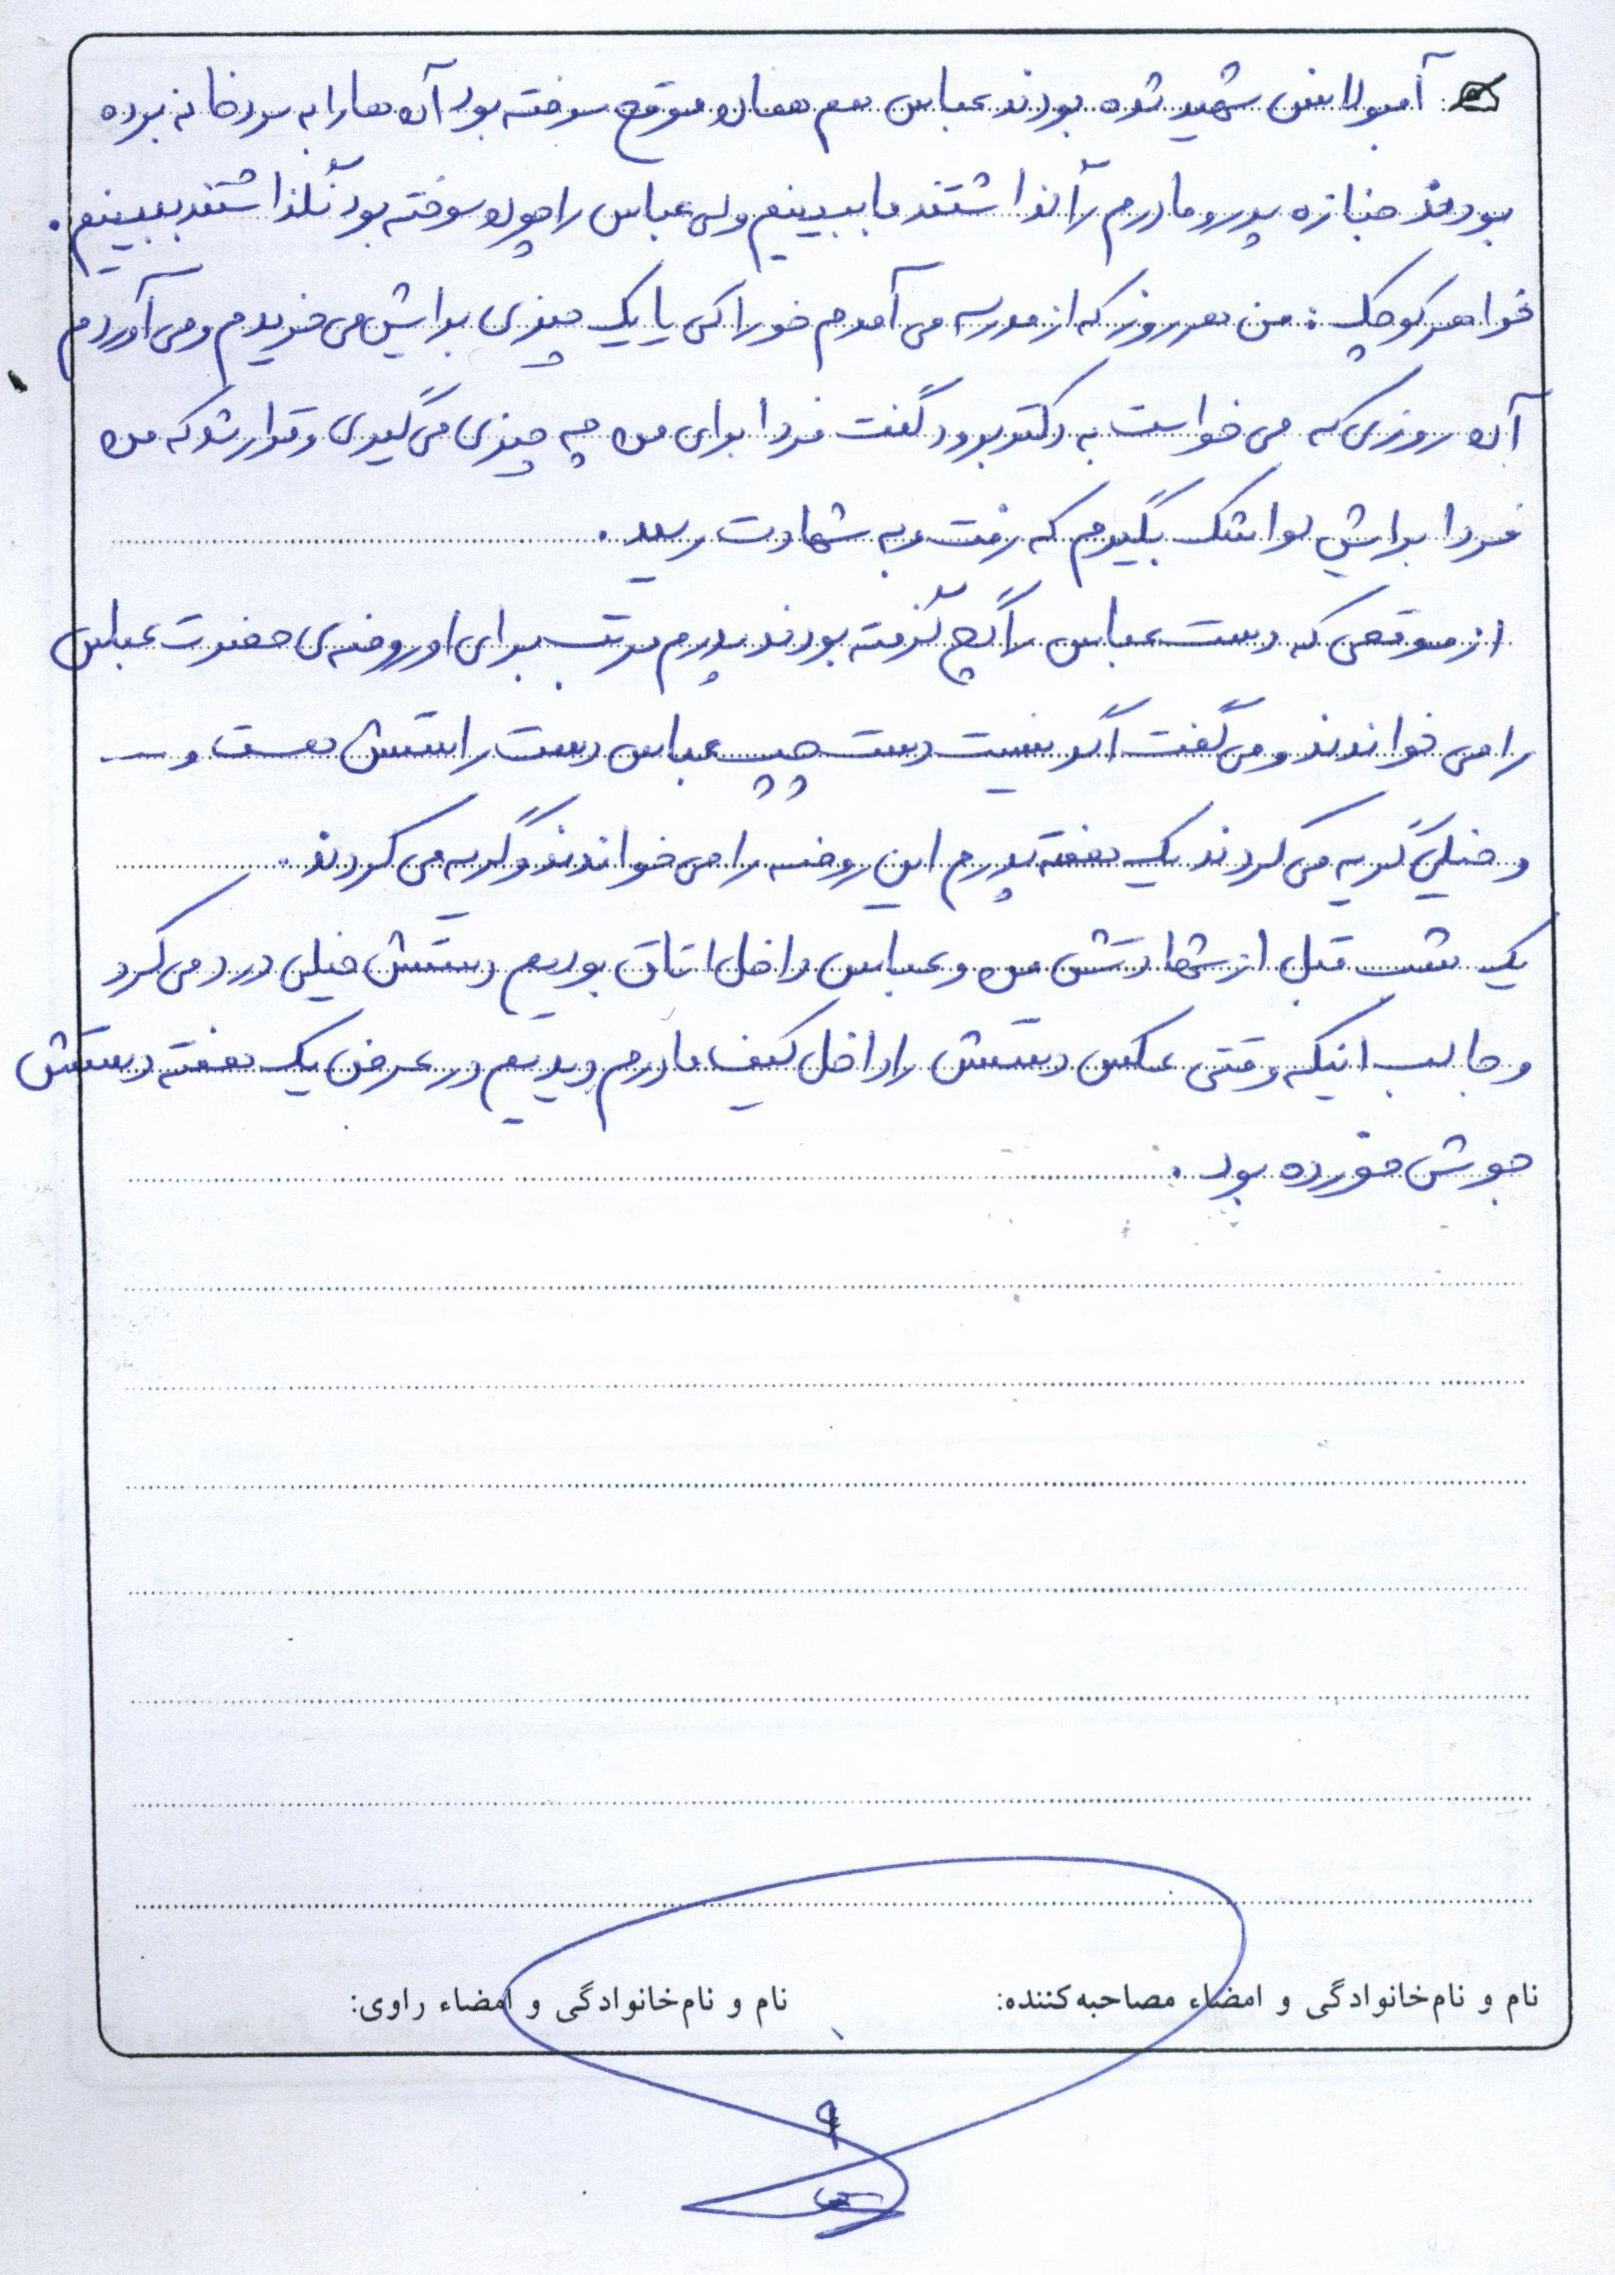 آمبولانس شهید شده بودند عباس هم همان موقع سوخته بود آن ها را به سردخانه برده
بودند جنازه پدر و مادرم را گذاشتند ما ببینیم ولی عباس را چون سوخته بود نگذاشتند ببینیم.
خواهر کوچک: من هر روز که از مدرسه می آمدم خوراکی یا یک چیزی برایش می خریدم و می آوردم
آن روزی که می خواست به دکتر برود گفت فردا برای من چه چیزی می گیری و قرار شد که من
فردا برایش لواشک بگیرم که رفت و به شهادت رسید.
از موقعی که دست عباس را گچ گرفته بودند پدرم مرتب برای او روضه ی حضرت عباس
را می خواندند و می گفت اگر نیست دست چپ عباس دست راستش هست و
و خیلی گریه می کردند یک هفته پدرم این روضه را می خواندند و گریه می کردند.
یک شب قبل از شهادتش من و عباس داخل اتاق بودیم دستش خیلی درد می کرد
و جالب اینکه وقتی عکس دستش را داخل کیف مادرم دیدیم در عرض یک هفته دستش
جوش خورده بود.
نام و نام‌خانوادگی و امضاء مصاحبه‌کننده: نام و نام‌خانوادگی و امضاء راوی:
۹